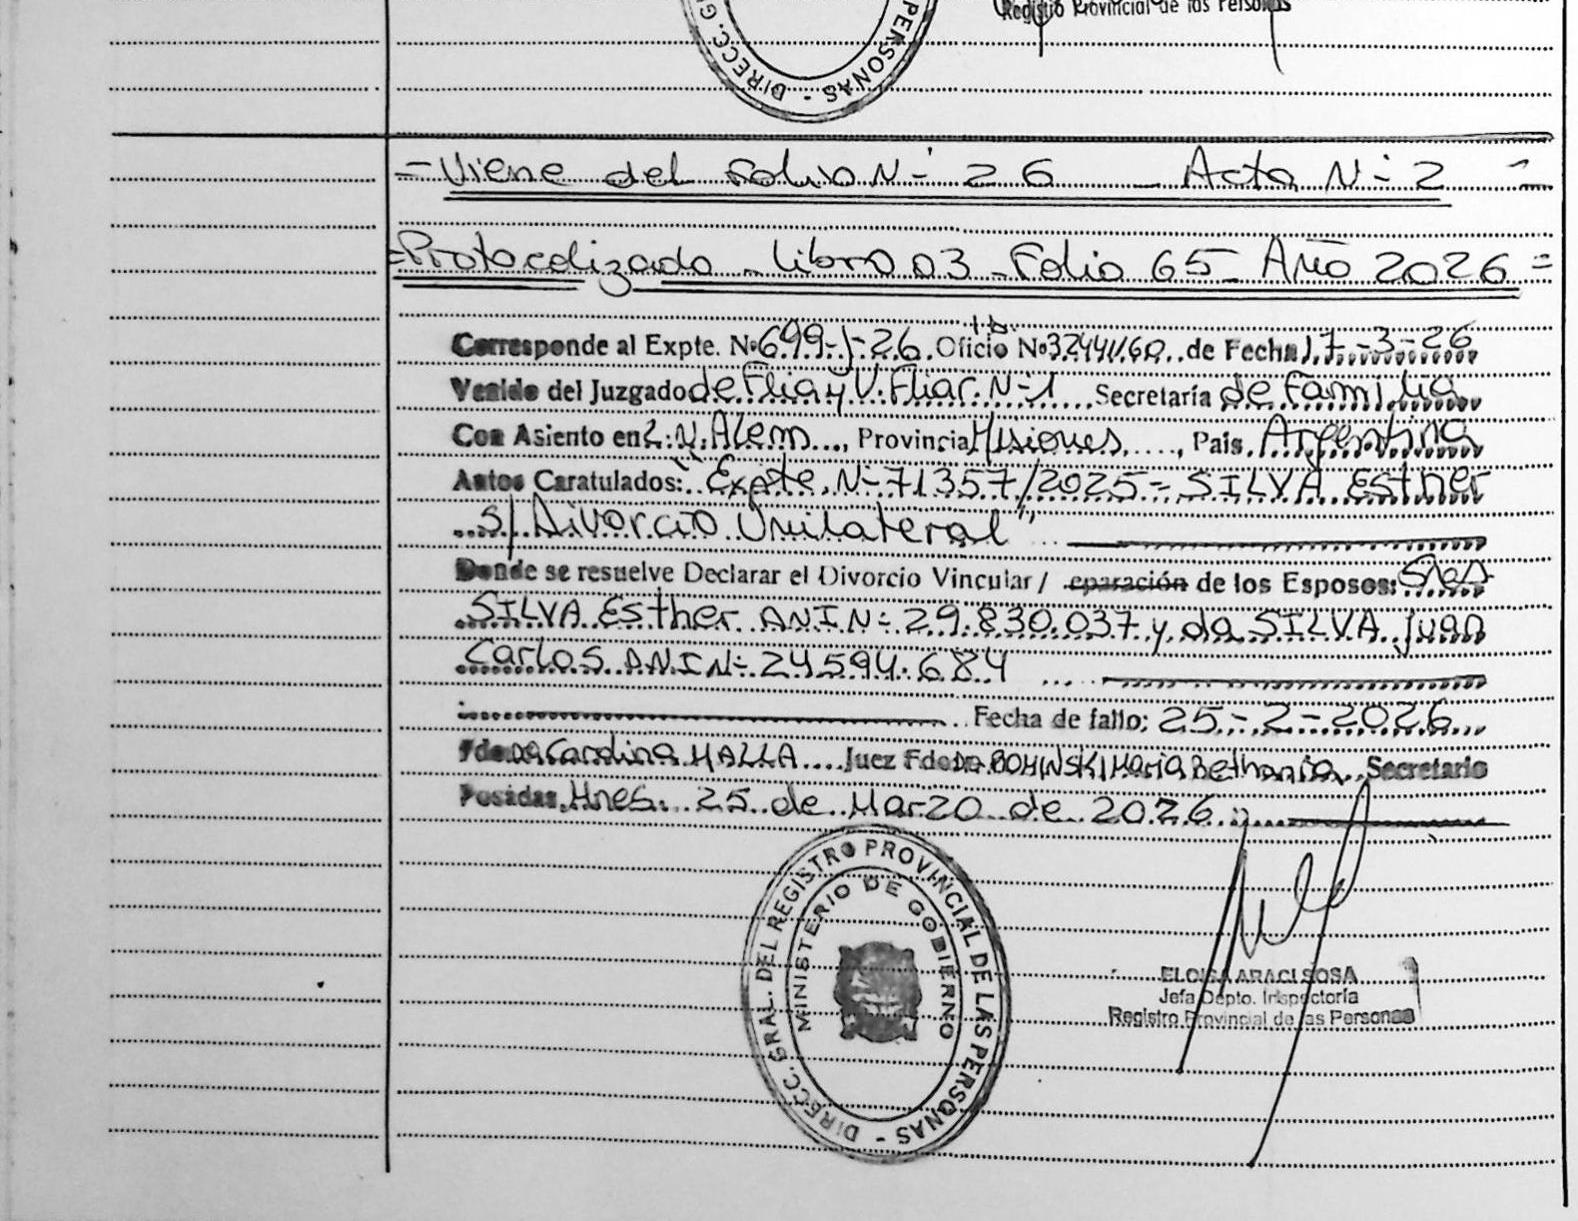 Registro Provincial de las Personas
DIRECC. G PERSONAS -
- Viene del Folio N-° 26 Acta N-° 2 -
= Protocolizado - Libro 03 - Folio 65 - Año 2026 =
Corresponde al Expte. Nº 699-J-26. Oficio Nº de Fecha 17-3-26
Venido del Juzgado de Flia y V. Fliar. N-° 1 Secretaría de Familia
Con Asiento en L. N. Alem, Provincia Misiones, Pais. Argentina
Autos Caratulados: "Expte. N-° 71357/2025 - SILVA Esther
S/ Divorcio Unilateral"
Donde se resuelve Declarar el Divorcio Vincular / eparación de los Esposos:
SILVA Esther D.N.I N-° 29.830.037 y de SILVA Juan
Carlos D.N.I N-° 24.594.684
Fecha de fallo: 25-2-2026
Fdo. Dra Carolina MALLA Juez Fdo Dra. María Bethania Secretario
Posadas, Mnes. 25 de Marzo de 2026
DIRECC. GRAL. DEL REGISTRO PROVINCIAL DE LAS PERSONAS -
MINISTERIO DE GOBIERNO
ELOISA ARACI SOSA
Jefa Depto. Inspectoría
Registro Provincial de las Personas